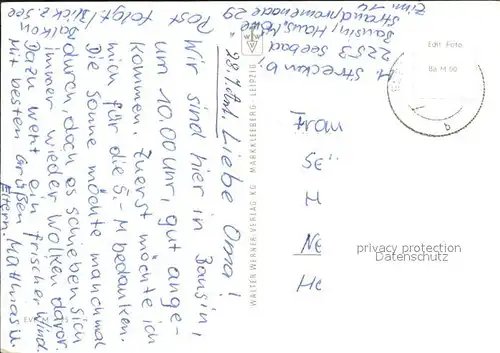 28.7. Liebe Oma!
Wir sind hier in Bansin,
um 10.00 Uhr, gut ange-
kommen. Zuerst möchte ich
mich für die 5.-M bedanken.
Die Sonne möchte manchmal
durch, doch es schieben sich
immer wieder Wolken davor.
Dazu weht ein frischer Wind.
Mit besten Grüßen Matthias u.
Eltern.
Post folgt! / Blick z. See
Balkon
H. Strecken b,
2253 Seebad
Bansin, Haus Möwe
Strandpromenade 29
Zim. 14
WALTER WERNER VERLAG KG · MARKKLEEBERG-LEIPZIG
Edit Foto
Ba M 90
Frau
H
NE
He
privacy protection
Datenschutz